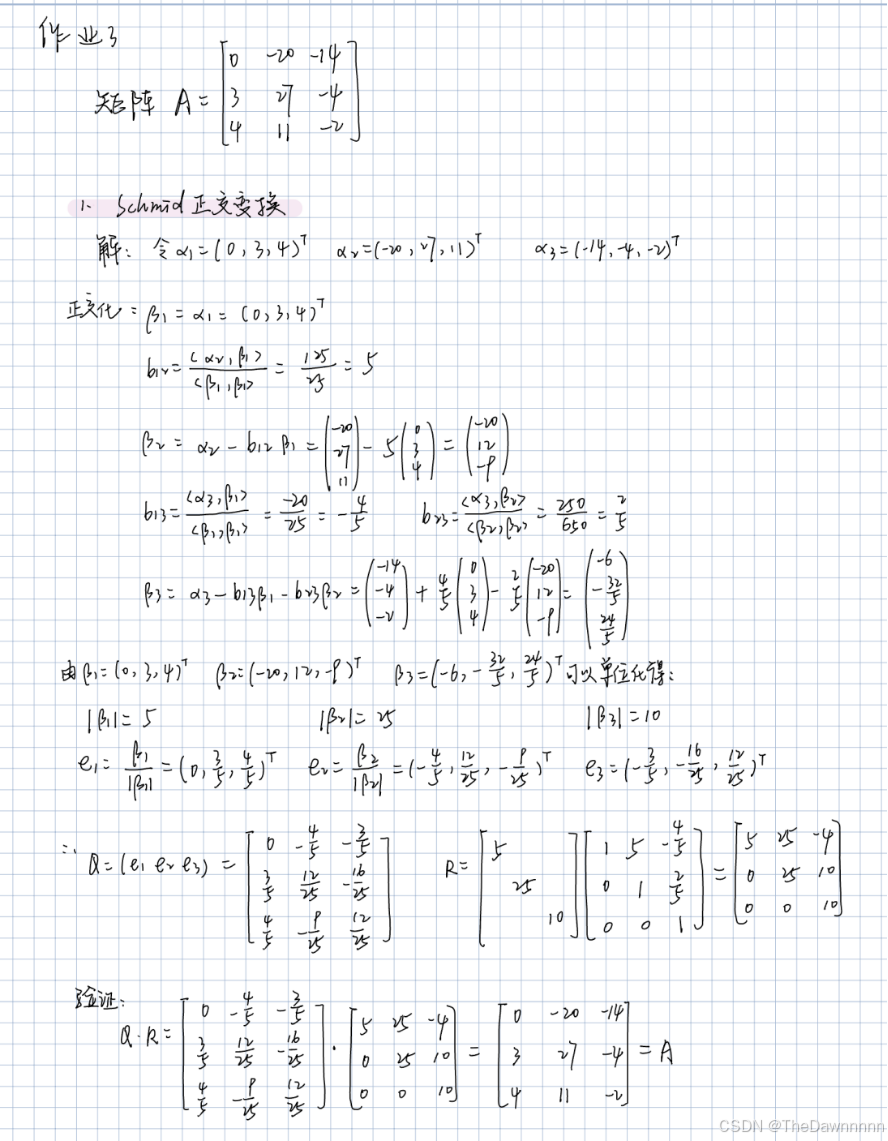 作业3
矩阵 A = [0 -20 -14; 3 27 -4; 4 11 -2]
1. Schmid正交变换
解: 令 α1=(0,3,4)^T α2=(-20,27,11)^T α3=(-14,-4,-2)^T
正交化: β1=α1=(0,3,4)^T
b12=<α2,β1>/<β1,β1>=125/25=5
β2=α2-b12β1=(-20;27;11)-5(0;3;4)=(-20;12;-9)
b13=<α3,β1>/<β1,β1>=-20/25=-4/5 b23=<α3,β2>/<β2,β2>=250/650=2/5
β3=α3-b13β1-b23β2=(-14;-4;-2)+4/5(0;3;4)-2/5(-20;12;-9)=(-6;-32/5;24/5)
由β1=(0,3,4)^T β2=(-20,12,-9)^T β3=(-6,-32/5,24/5)^T可以单位化得:
|β1|=5 |β2|=25 |β3|=10
e1=β1/|β1|=(0,3/5,4/5)^T e2=β2/|β2|=(-4/5,12/25,-9/25)^T e3=(-3/5,-16/25,12/25)^T
∴ Q=(e1 e2 e3)=[0 -4/5 -3/5; 3/5 12/25 -16/25; 4/5 -9/25 12/25] R=[5; 25; 10][1 5 -4/5; 0 1 2/5; 0 0 1]=[5 25 -4; 0 25 10; 0 0 10]
验证:
Q·R=[0 -4/5 -3/5; 3/5 12/25 -16/25; 4/5 -9/25 12/25]·[5 25 -4; 0 25 10; 0 0 10]=[0 -20 -14; 3 27 -4; 4 11 -2]=A
CSDN @TheDawnnnnn